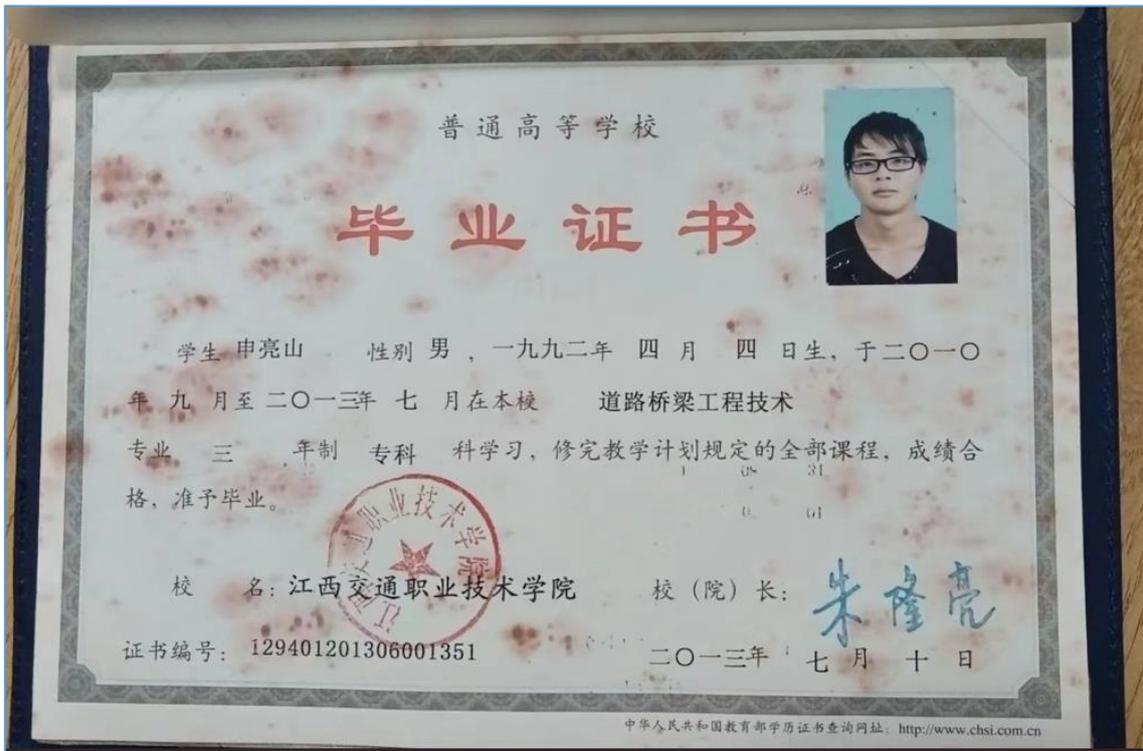 普通高等学校
毕业证书
学生 申亮山 性别 男 ，一九九二年 四 月 四 日生，于二〇一〇
年 九 月至 二〇一三年 七 月在本校 道路桥梁工程技术
专业 三 年制 专科 科学习，修完教学计划规定的全部课程，成绩合
格，准予毕业。
江西交通职业技术学院
校 名：江西交通职业技术学院 校（院）长：朱隆亮
证书编号：129401201306001351 二〇一三年 七 月 十 日
中华人民共和国教育部学历证书查询网址：http://www.chsi.com.cn